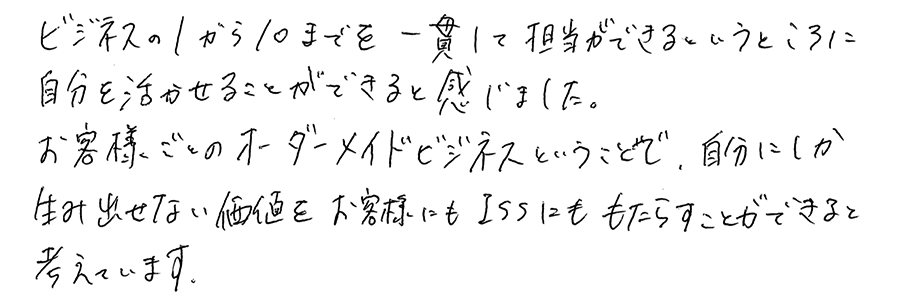 ビジネスの1から10までを一貫して担当ができるというところに
自分を活かせることができると感じました。
お客様ごとのオーダーメイドビジネスということで、自分にしか
生み出せない価値をお客様にもISSにももたらすことができると
考えています。